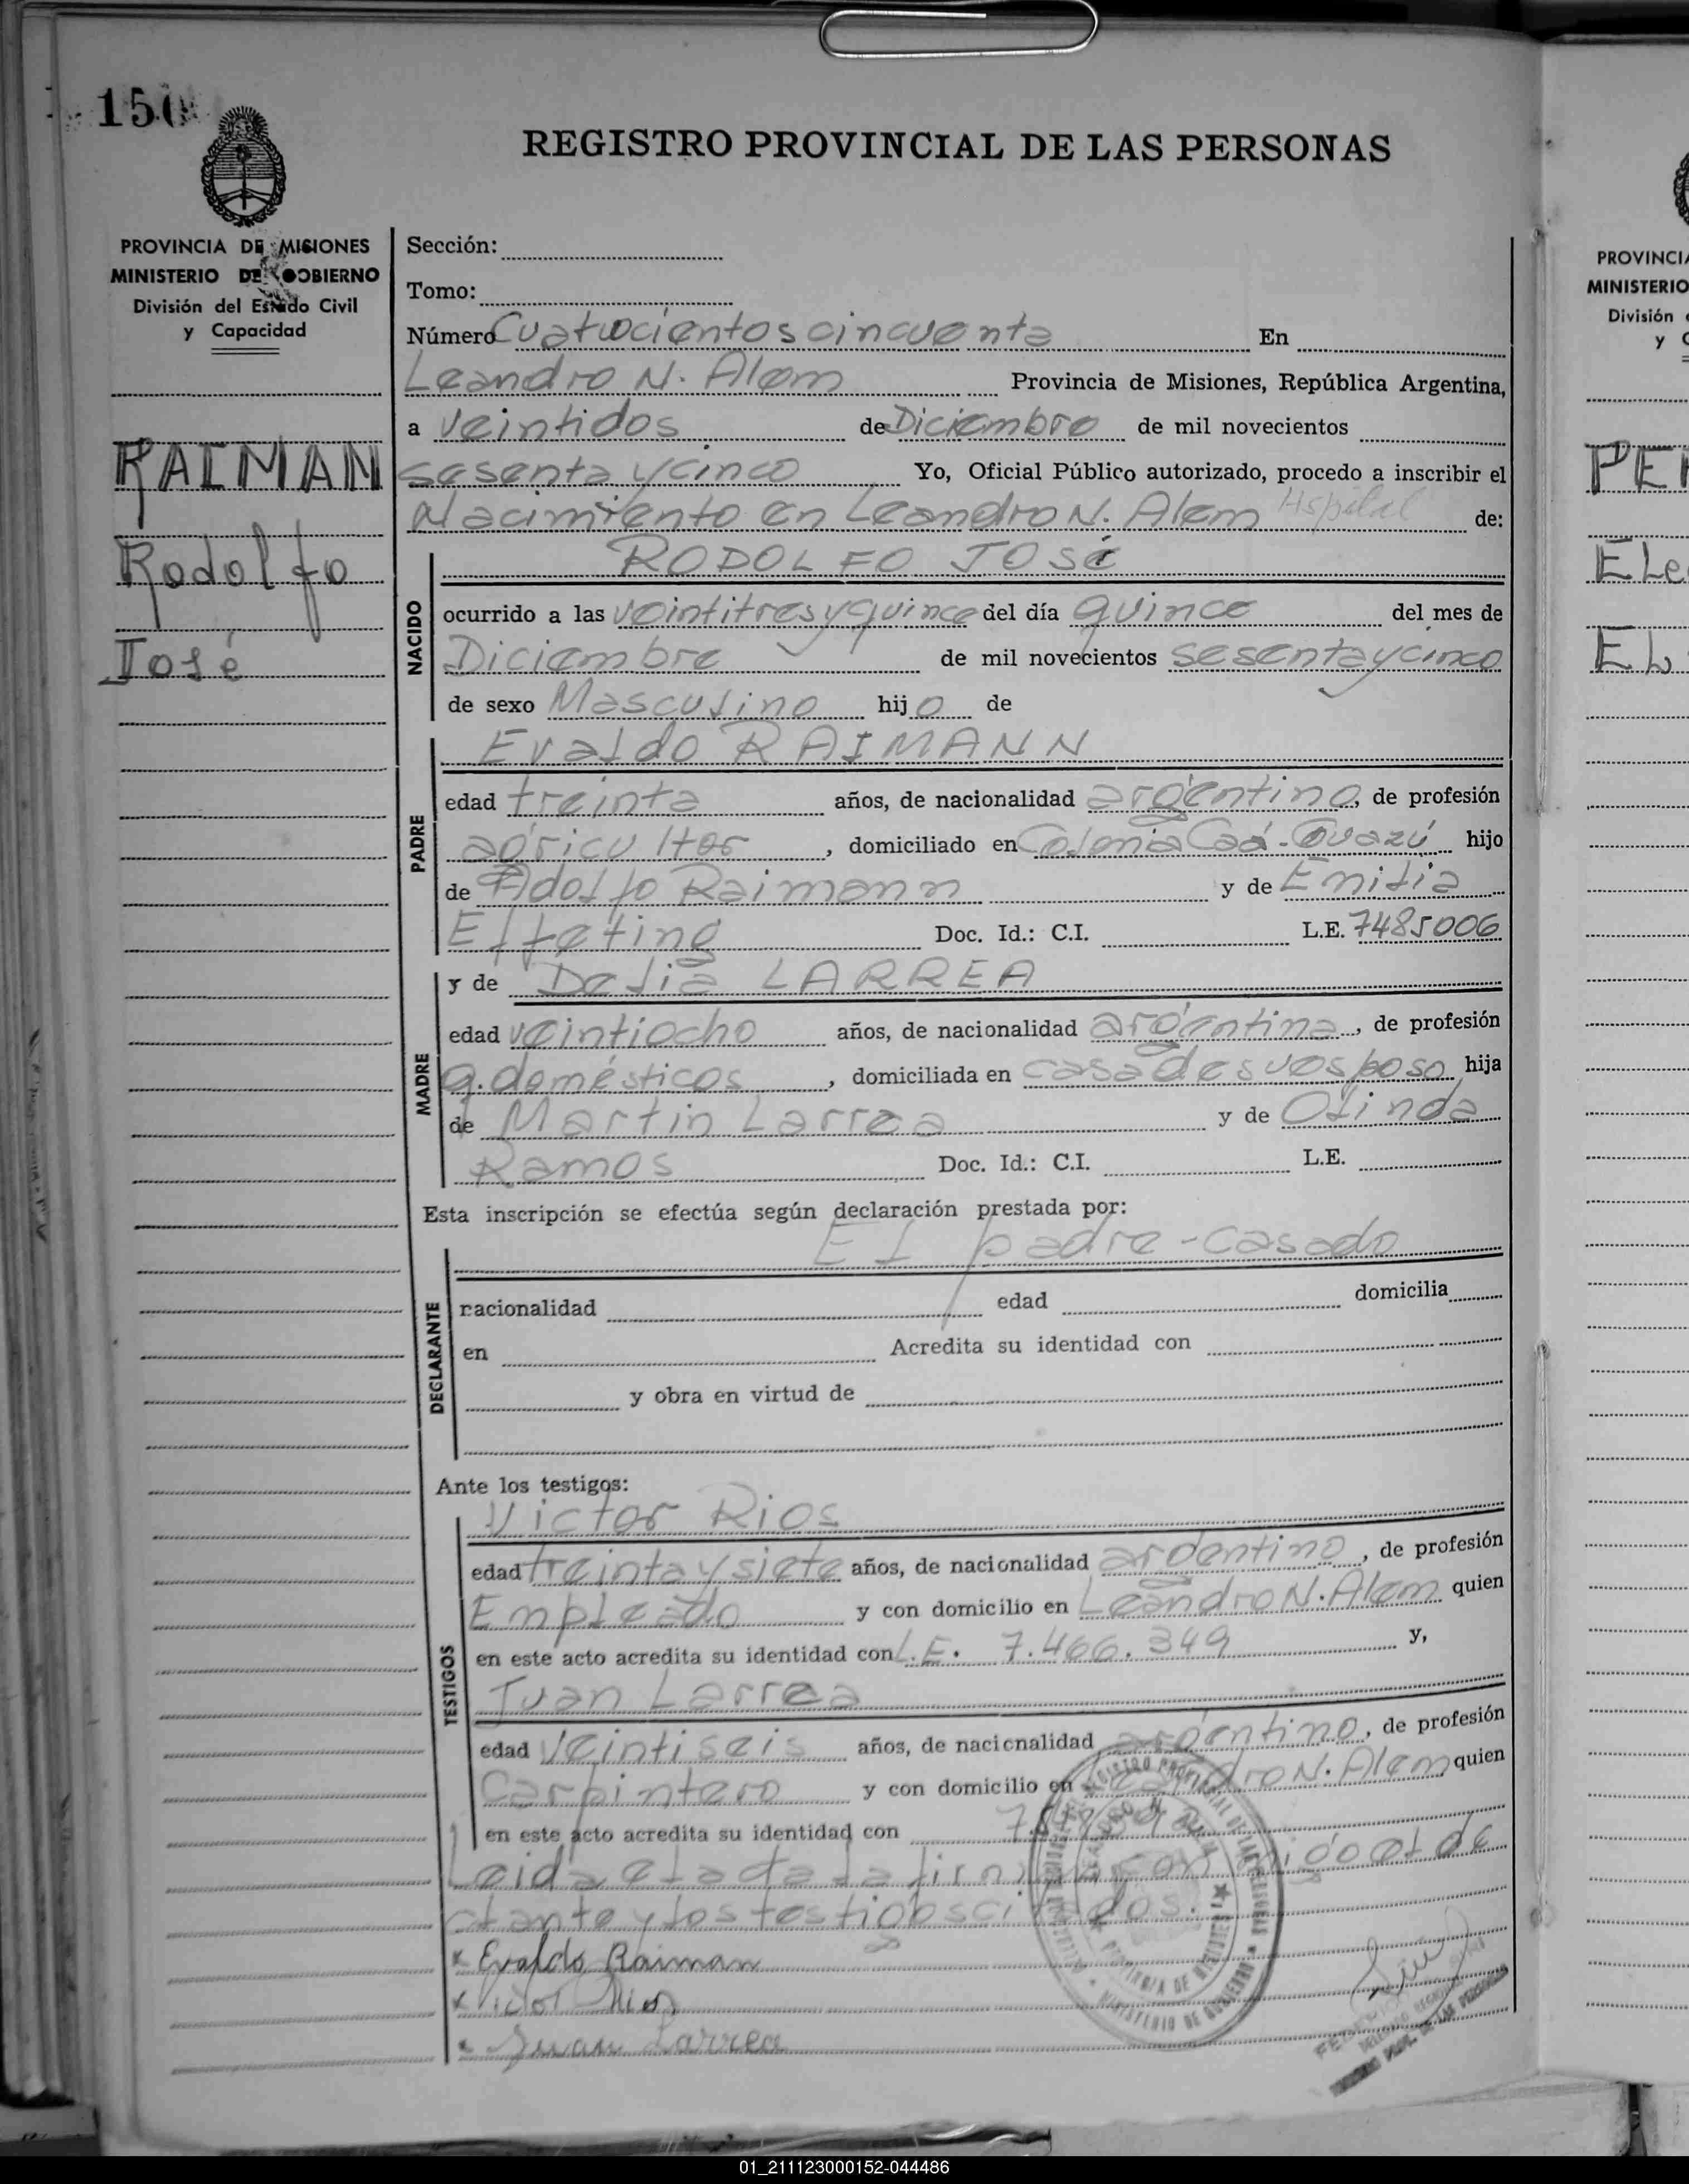 150
REGISTRO PROVINCIAL DE LAS PERSONAS
PROVINCIA DE MISIONES
MINISTERIO DE GOBIERNO
División del Estado Civil
y Capacidad
RAIMAN
Rodolfo
José
Sección:
Tomo:
Número Cuatrocientos cincuenta En
Leandro N. Alem Provincia de Misiones, República Argentina,
a veintidos de Diciembre de mil novecientos
sesenta y cinco Yo, Oficial Público autorizado, procedo a inscribir el
Nacimiento en Leandro N. Alem Hspital de:
RODOLFO JOSÉ
NACIDO
ocurrido a las veintitres y quince del día quince del mes de
Diciembre de mil novecientos sesenta y cinco
de sexo Masculino hijo de
Evaldo RAIMANN
PADRE
edad treinta años, de nacionalidad argentino, de profesión
agricultor, domiciliado en Colonia Caá-Guazú hijo
de Adolfo Raimann y de Emilia
Effeting Doc. Id.: C.I. L.E. 7485006
y de Delia LARREA
MADRE
edad veintiocho años, de nacionalidad argentina, de profesión
q. domésticos, domiciliada en casa de su esposo hija
de Martin Larrea y de Olinda
Ramos Doc. Id.: C.I. L.E.
Esta inscripción se efectúa según declaración prestada por:
El padre - casado
DECLARANTE
nacionalidad edad domicilia
en Acredita su identidad con
y obra en virtud de
Ante los testigos:
Victor Rios
TESTIGOS
edad treinta y siete años, de nacionalidad argentino, de profesión
Empleado y con domicilio en Leandro N. Alem quien
en este acto acredita su identidad con L.E. 7.466.349 y,
Juan Larrea
edad veintiseis años, de nacionalidad argentino, de profesión
Carpintero y con domicilio en Leandro N. Alem quien
en este acto acredita su identidad con
Leida el acta la firman conmigo el de
clante y los testigos citados.
x Evaldo Raiman
x Victor Rios
x Juan Larrea
REGISTRO PROVINCIAL DE LAS PERSONAS
MINISTERIO DE GOBIERNO
PROVINCIA DE MISIONES
PROVINCIA
MINISTERIO
División
y
PE
ELe
EL
01_211123000152-044486